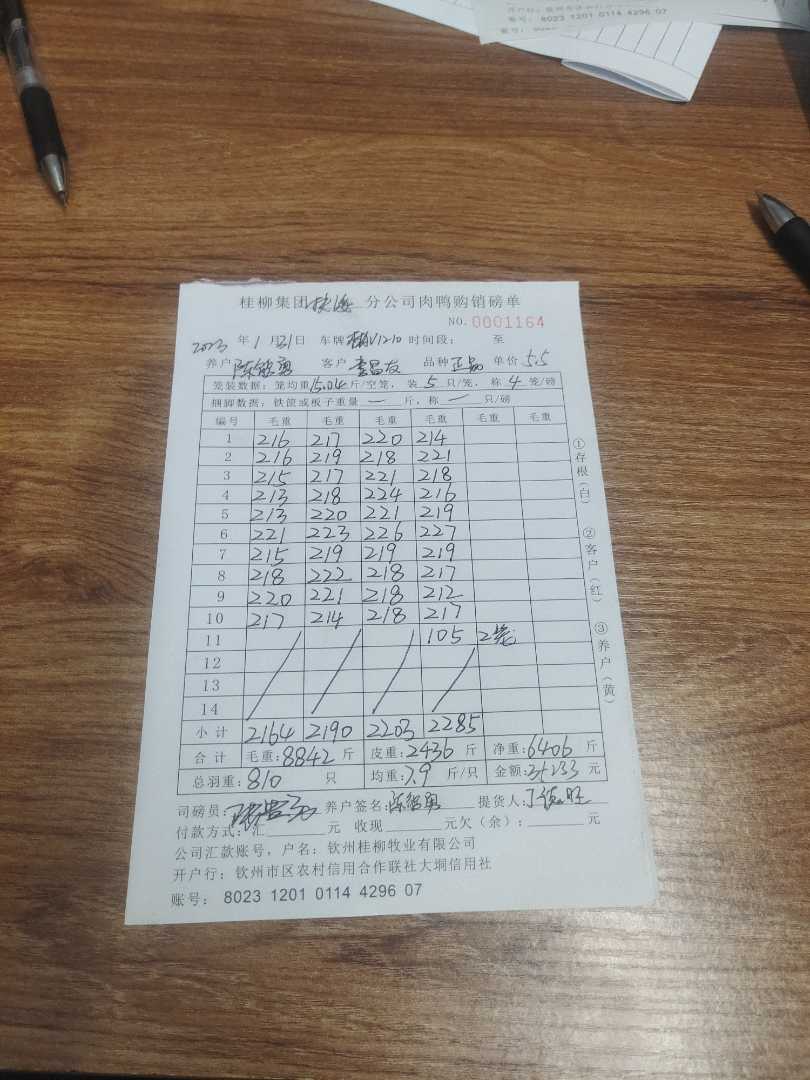 账号: 8023 1201 0114 4296 07
桂柳集团 分公司肉鸭购销磅单
NO. 0001164
2023 年 1 月 21 日 车牌 V1210 时间段: 至
养户 陈铭勇 客户 李昌友 品种 正品 单价 5.5
笼装数据: 笼均重 15.04 斤/空笼, 装 5 只/笼, 称 4 笼/磅
捆脚数据: 铁筐或板子重量 — 斤, 称 — 只/磅
编号 毛重 毛重 毛重 毛重 毛重 毛重
1 216 217 220 214
2 216 219 218 221
3 215 217 221 218
4 213 218 224 216
5 213 220 221 219
6 221 223 226 227
7 215 219 219 219
8 218 222 218 217
9 220 221 218 212
10 217 214 218 217
11 105 2笼
12
13
14
小计 2164 2190 2203 2285
合计 毛重: 8842 斤 皮重: 2436 斤 净重: 6406 斤
总羽重: 810 只 均重: 7.9 斤/只 金额: 35233 元
司磅员: 养户签名: 提货人:
付款方式: 汇 元 收现 元欠(余): 元
公司汇款账号, 户名: 钦州桂柳牧业有限公司
开户行: 钦州市区农村信用合作联社大垌信用社
账号: 8023 1201 0114 4296 07
①存根(白)
②客户(红)
③养户(黄)